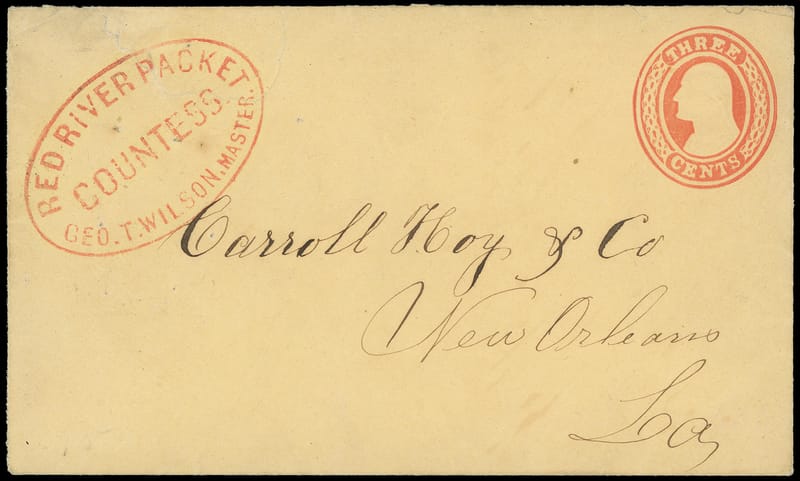 RED RIVER PACKET
COUNTESS
GEO. T. WILSON, MASTER.
THREE
CENTS
Carroll Hoy & Co
New Orleans
La,